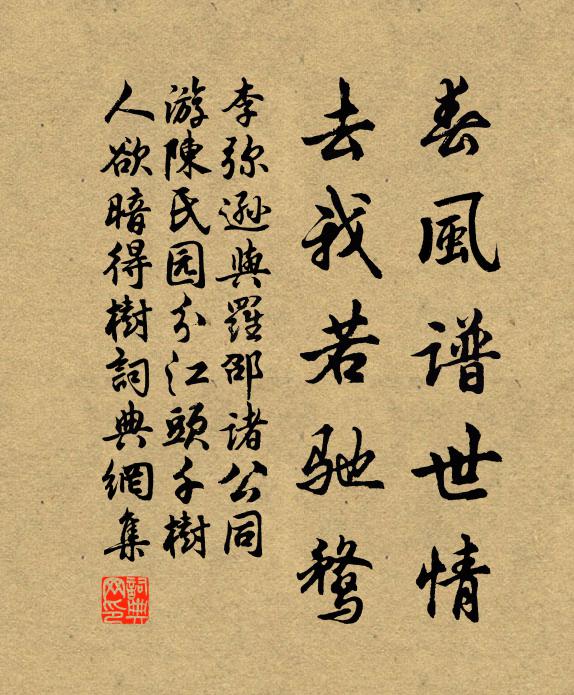 春風谱世情
去我若馳鶩
李弥遜與羅邵諸公同
游陳氏园分江頭千樹
人欲暗得樹詞典網集
詞典
网印